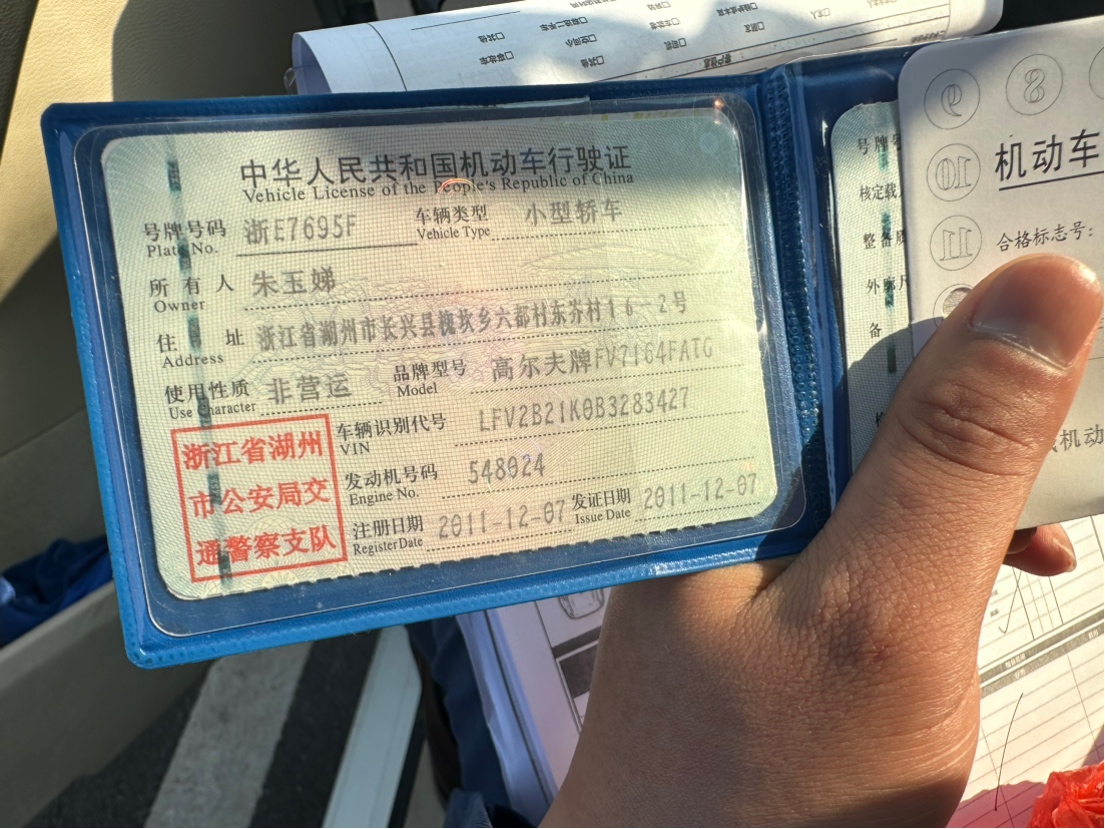 中华人民共和国机动车行驶证
Vehicle License of the People's Republic of China
号牌号码 浙E7695F 车辆类型 小型轿车
Plate No. Vehicle Type
所有人 朱玉娣
Owner
住址 浙江省湖州市长兴县槐坎乡六都村东芥村16-2号
Address
使用性质 非营运 品牌型号 高尔夫牌FV7164FATG
Use Character Model
浙江省湖州
市公安局交
通警察支队
车辆识别代号 LFV2B21K0B3283427
VIN
发动机号码 548024
Engine No.
注册日期 2011-12-07 发证日期 2011-12-07
Register Date Issue Date
号牌号
核定载
整备质
外廓尺
备
机动车
合格标志号:
8
9
10
11
机动